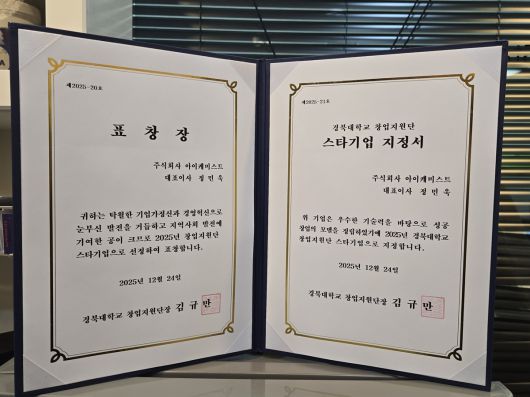 제2025-20호
표 창 장
주식회사 아이케미스트
대표이사 정 민 욱
귀하는 탁월한 기업가정신과 경영혁신으로
눈부신 발전을 거듭하고 지역사회 발전에
기여한 공이 크므로 2025년 창업지원단
스타기업으로 선정하여 표창합니다.
2025년 12월 24일
경북대학교 창업지원단장 김 규 만
제2025-21호
경북대학교 창업지원단
스타기업 지정서
주식회사 아이케미스트
대표이사 정 민 욱
위 기업은 우수한 기술력을 바탕으로 성공
창업의 모델을 정립하였기에 2025년 경북대학교
창업지원단 스타기업으로 지정합니다.
2025년 12월 24일
경북대학교 창업지원단장 김 규 만